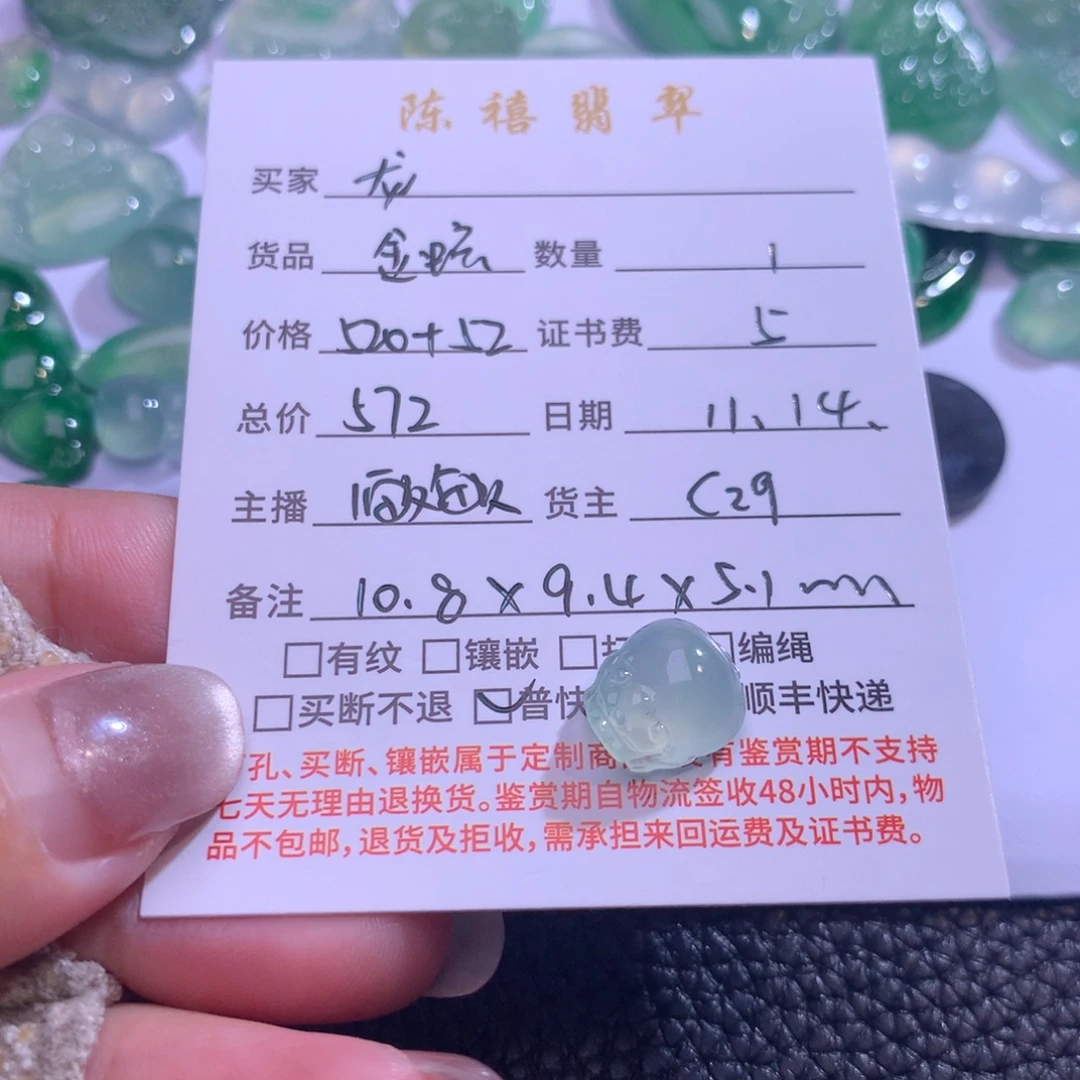 陈禧翡翠
买家 龙
货品 金蟾 数量 1
价格 520+52 证书费 5
总价 572 日期 11.14.
主播 货主 C29
备注 10.8×9.4×5.1mm
□有纹 □镶嵌 □ 编绳
□买断不退 ☑普快 顺丰快递
孔、买断、镶嵌属于定制商 有鉴赏期不支持
七天无理由退换货。鉴赏期自物流签收48小时内,物
品不包邮,退货及拒收,需承担来回运费及证书费。